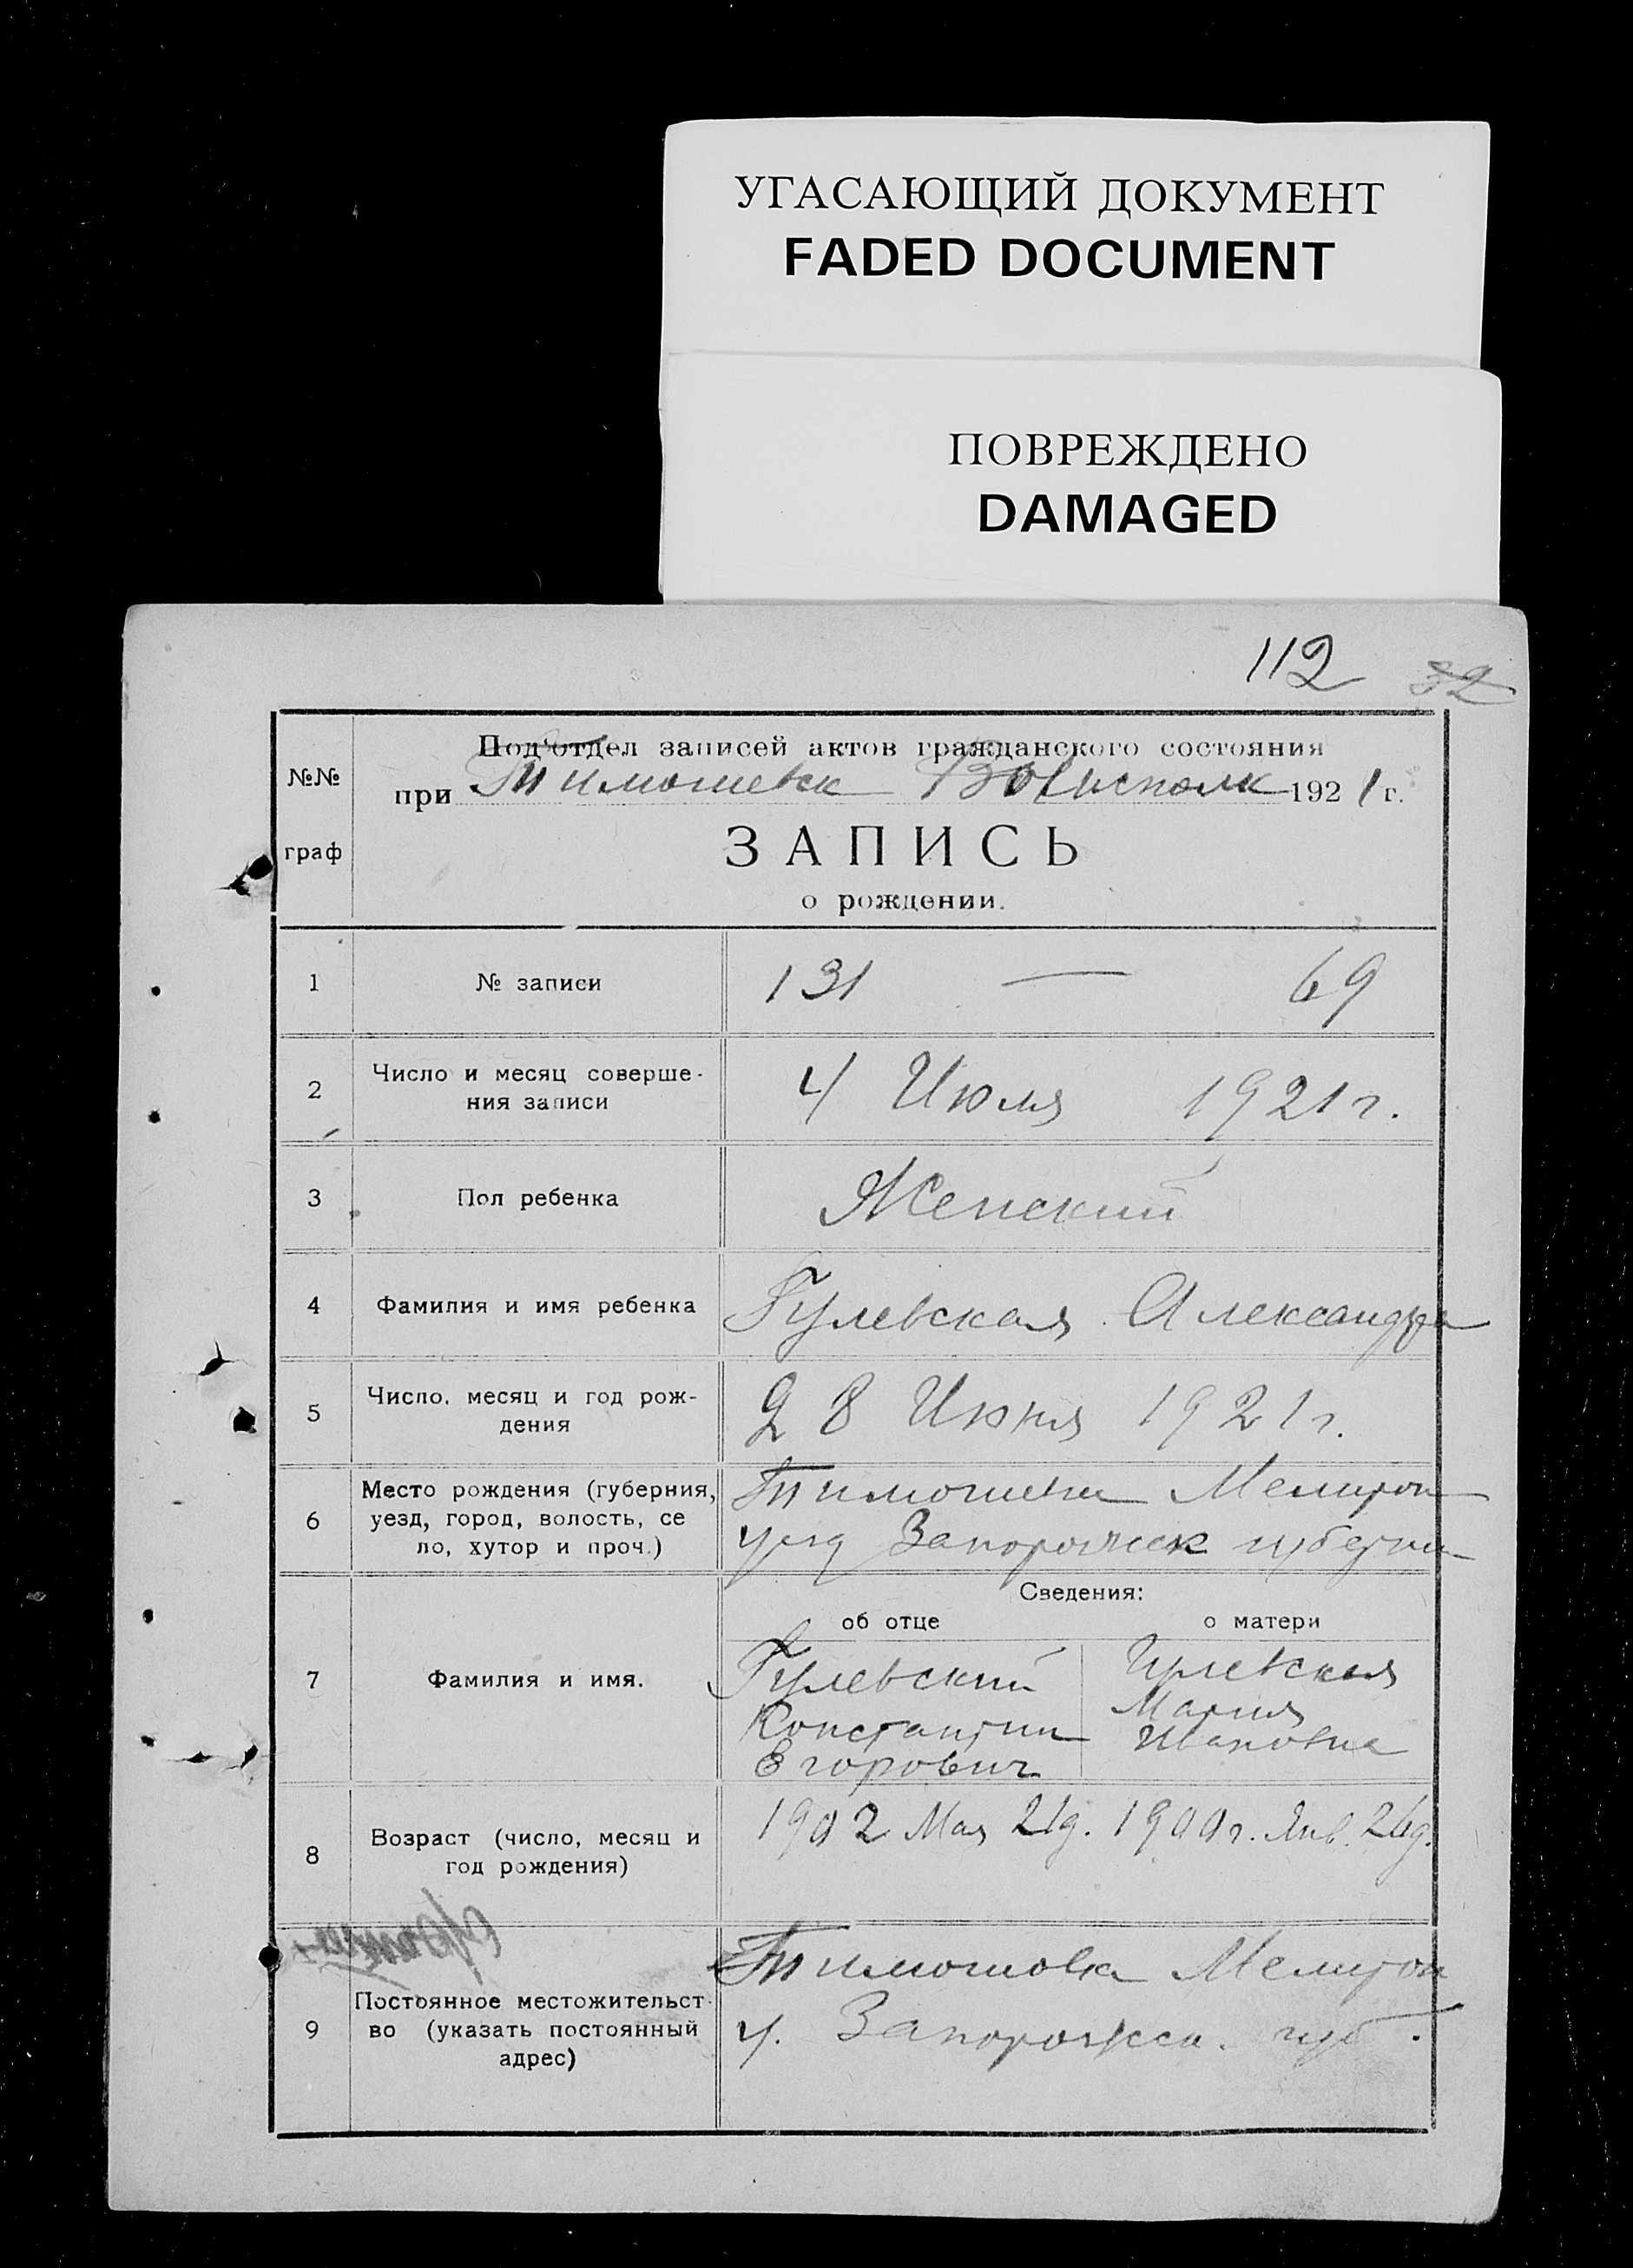 УГАСАЮЩИЙ ДОКУМЕНТ
FADED DOCUMENT
ПОВРЕЖДЕНО
DAMAGED
112 32
№№ граф
Под'отдел записей актов гражданского состояния
при Тимошевск Волисполк 1921 г.
ЗАПИСЬ
о рождении.
1 № записи 131 — 69
2 Число и месяц соверше-
ния записи 4 Июля 1921 г.
3 Пол ребенка Женский
4 Фамилия и имя ребенка Гулевская Александра
5 Число, месяц и год рож-
дения 28 Июня 1921 г.
6 Место рождения (губерния,
уезд, город, волость, се
ло, хутор и проч.)
Тимошевка Мелитоп
уезд Запорожск губерни
Сведения:
об отце о матери
7 Фамилия и имя.
Гулевский
Константин
Егорович
Гулевская
Мария
Ивановна
8 Возраст (число, месяц и
год рождения)
1902 Мая 21д. 1900 г. Янв. 26д.
9 Постоянное местожительст-
во (указать постоянный
адрес)
Тимошовка Мелитоп
у. Запорожск. губ.